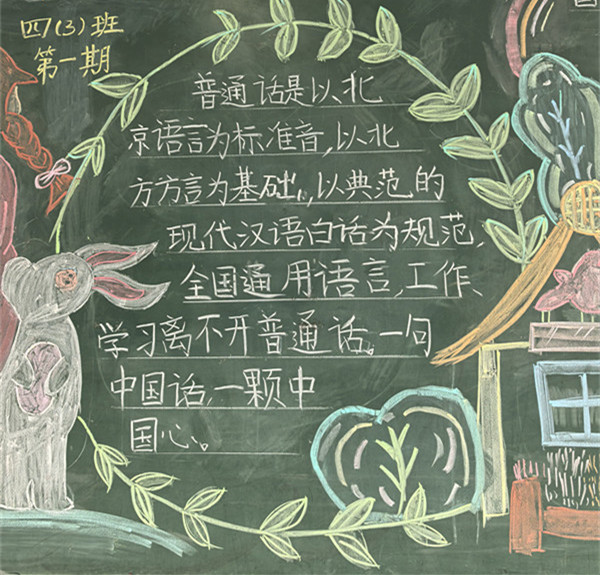 四(3)班
第一期
普通话是以北
京语言为标准音,以北
方方言为基础,以典范的
现代汉语白话为规范,
全国通用语言,工作、
学习离不开普通话。一句
中国话,一颗中
国心。